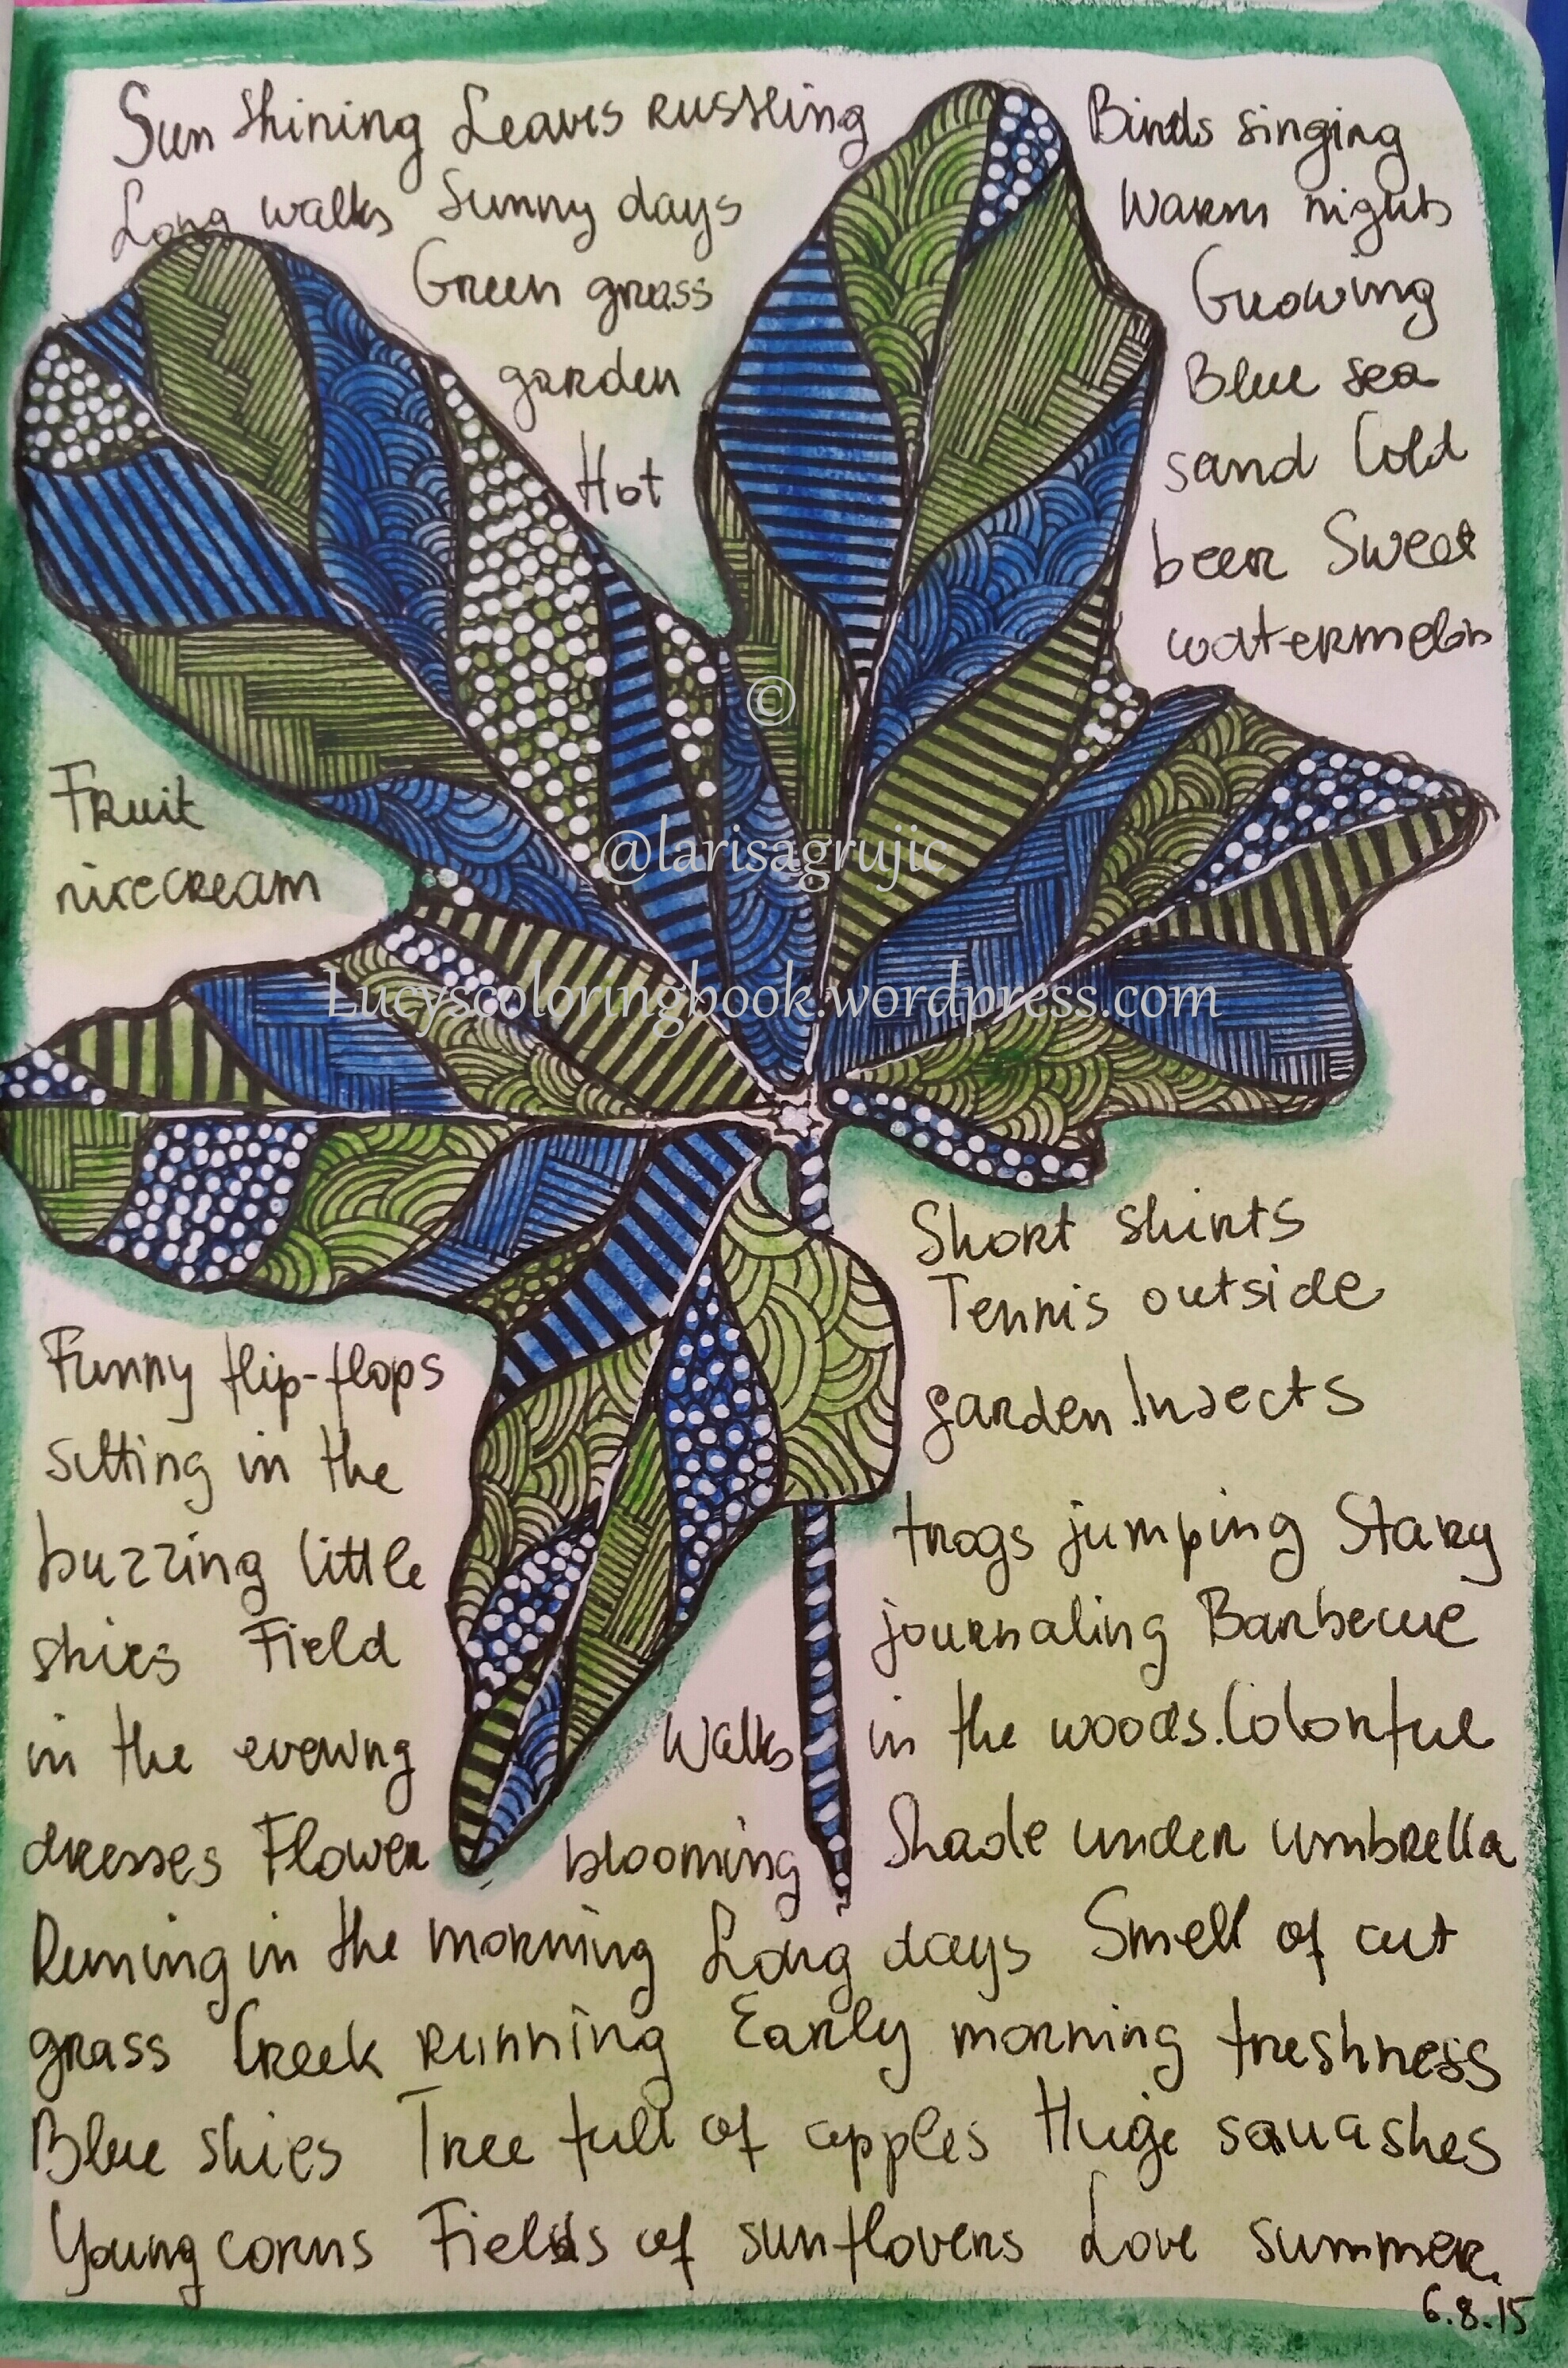 Sun Shining Leaves rustling Birds singing
Long walks Sunny days Warm nights
Green grass Growing
garden Blue sea
Hot sand Cold
beer Sweet
watermelon
©
Fruit
nicecream
@larisagrujic
Lucyscoloringbook.wordpress.com
Short shirts
Tennis outside
Funny flip-flops garden Insects
sitting in the
buzzing little frogs jumping Stary
skies Field journaling Barbecue
in the evening Walks in the woods. Colorful
dresses Flower blooming Shade under umbrella
Runing in the morning Long days Smell of cut
grass Creek running Early morning freshness
Blue skies Tree full of apples Huge squashes
Young corns Fields of sunflovers Love summer.
6.8.15